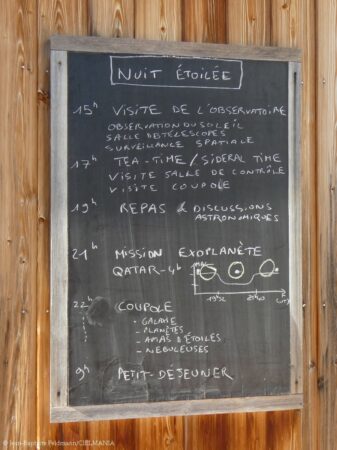 NUIT ÉTOILÉE
15h VISITE DE L'OBSERVATOIRE
OBSERVATION DU SOLEIL
SALLE DE TÉLESCOPES
SURVEILLANCE SPATIALE
17h TEA-TIME / SIDERAL TIME
VISITE SALLE DE CONTRÔLE
VISITE COUPOLE
19h REPAS & DISCUSSIONS
ASTRONOMIQUES
21h MISSION EXOPLANÈTE
QATAR-4b
22h COUPOLE
- GALAXIE
- PLANÈTES
- AMAS D'ÉTOILES
- NEBULEUSES
9h PETIT-DÉJEUNER
© Jean-Baptiste Feldmann/CIELMANIA